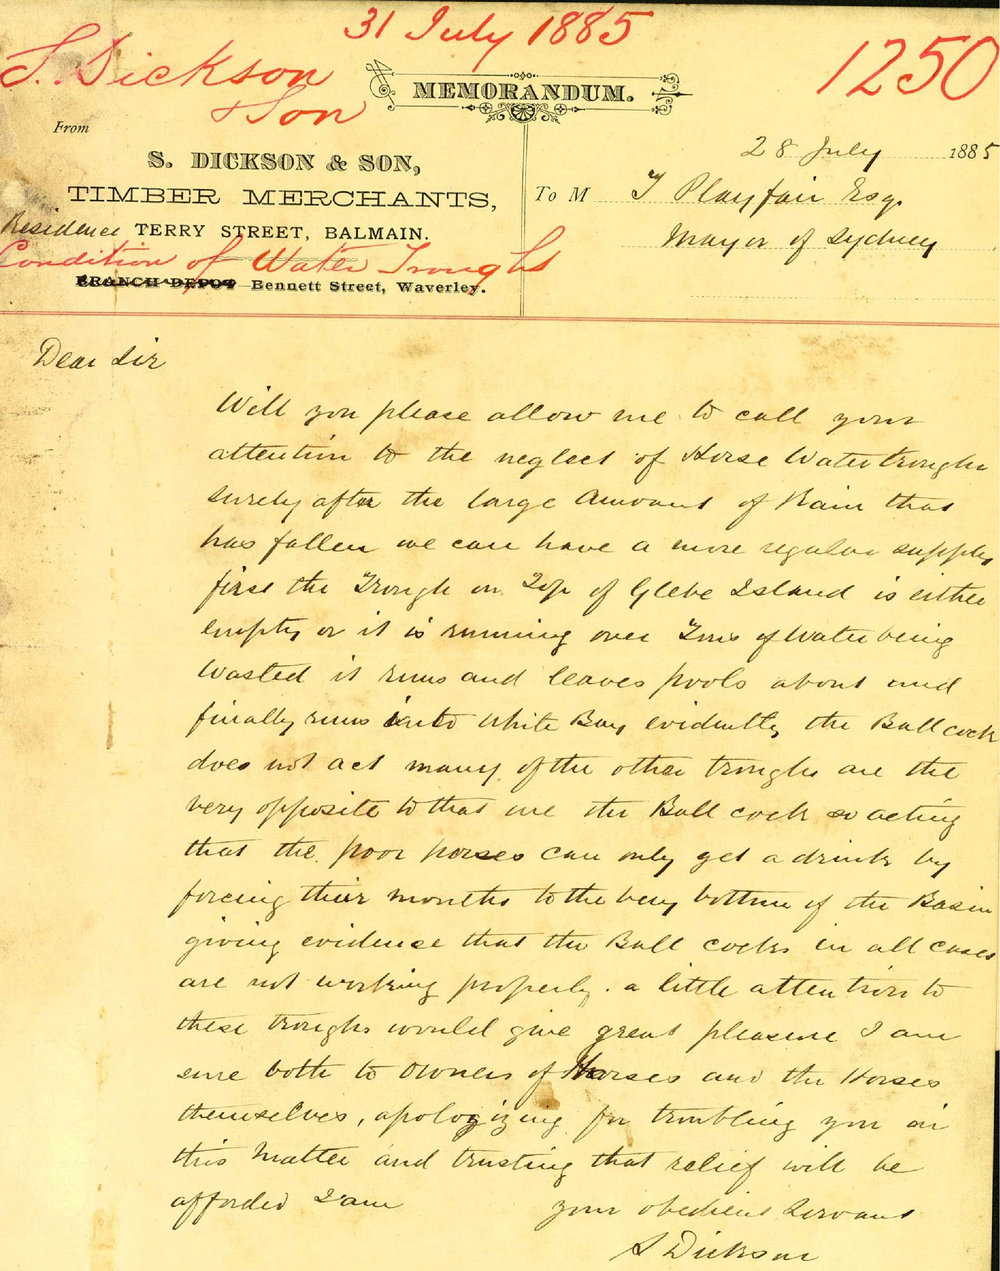 31 July 1885
1250
S. Dickson
& Son
MEMORANDUM.
From
S. DICKSON & SON,
TIMBER MERCHANTS,
Residence TERRY STREET, BALMAIN.
Condition of Water Troughs
BRANCH DEPOT Bennett Street, Waverley.
28 July 1885
To M T Playfair Esq.
Mayor of Sydney
Dear Sir
Will you please allow me to call your
attention to the neglect of Horse Water troughs
surely after the large amount of Rain that
has fallen we can have a more regular supply
first the Trough on Top of Glebe Island is either
empty or it is running over Tons of Water being
wasted it runs and leaves pools about and
finally runs into White Bay evidently the Ball cock
does not act many of the other troughs are the
very opposite to that one the Ball cock so acting
that the poor horses can only get a drink by
forcing their mouths to the very bottom of the Basin
giving evidence that the Ball cocks in all cases
are not working properly. a little attention to
these troughs would give great pleasure I am
sure both to owners of Horses and the Horses
themselves, apologizing for troubling you in
this Matter and trusting that relief will be
afforded I am
your obedient Servant
S Dickson